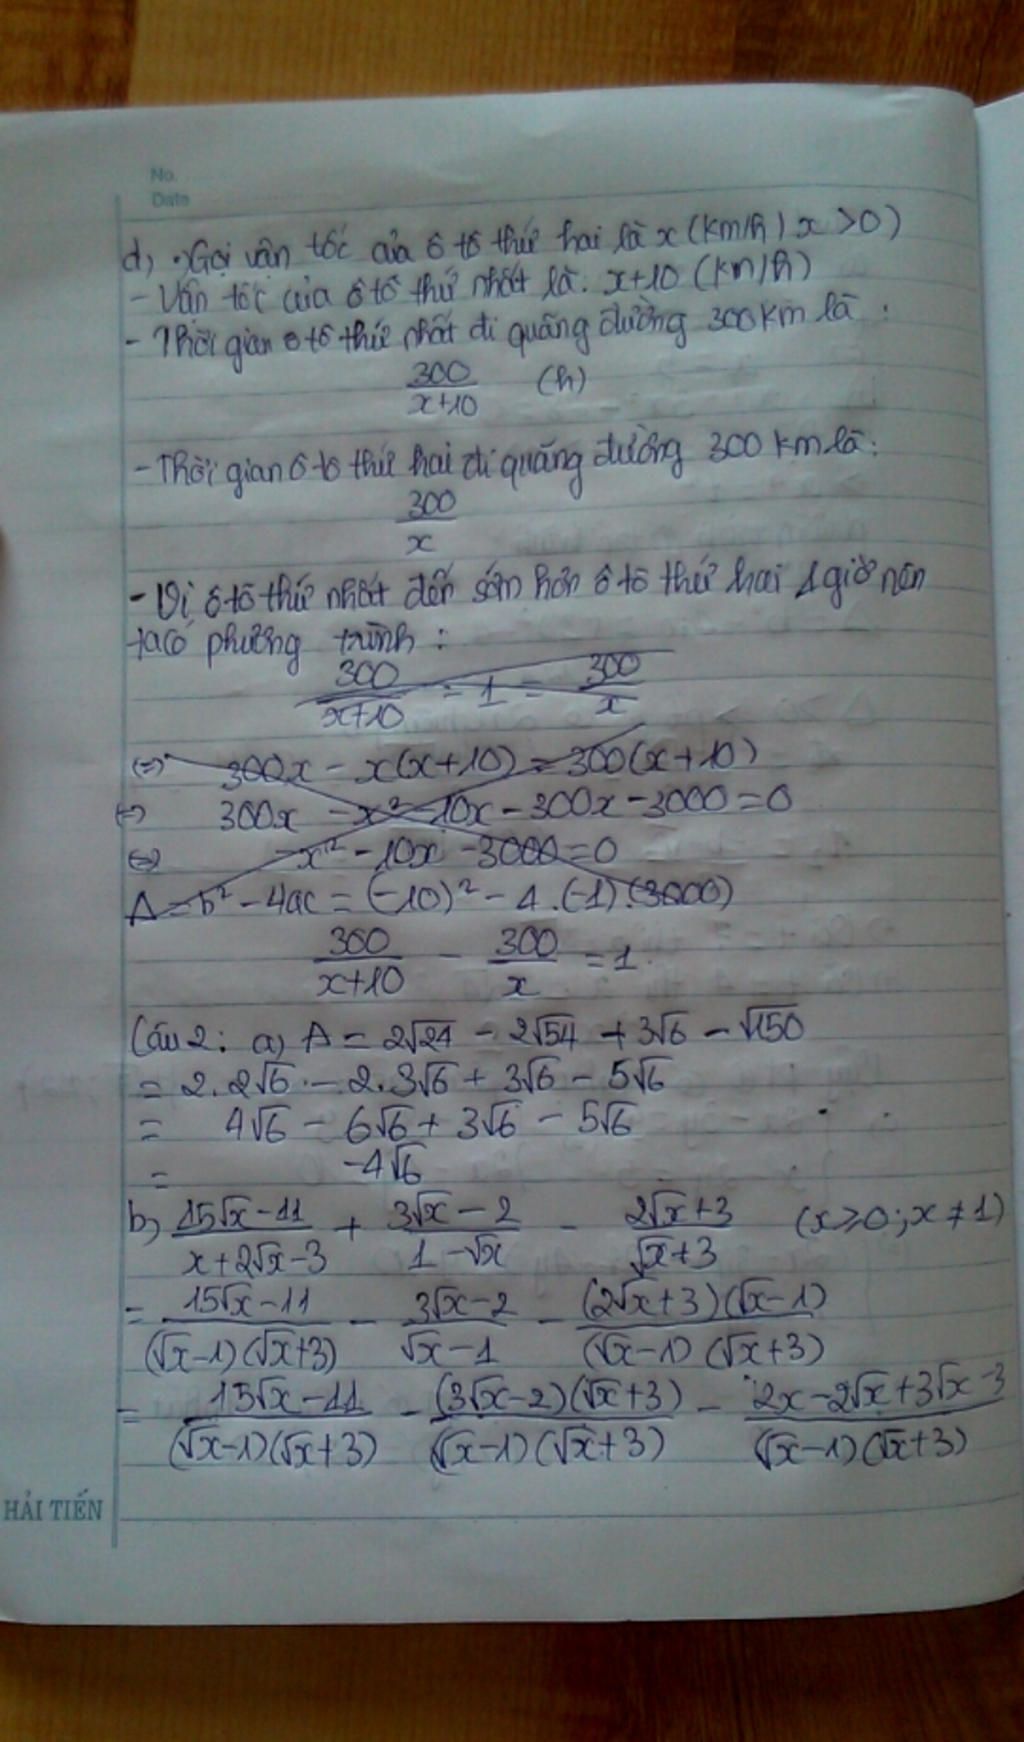 No.
Date
d) Gọi vận tốc của ô tô thứ hai là x (km/h) x > 0)
- Vận tốc của ô tô thứ nhất là: x+10 (km/h)
- Thời gian ô tô thứ nhất đi quãng đường 300km là :
300/(x+10) (h)
- Thời gian ô tô thứ hai đi quãng đường 300 km là:
300/x
- Vì ô tô thứ nhất đến sớm hơn ô tô thứ hai 1 giờ nên
ta có phương trình :
300/(x+10) = 1 = 300/x
(=) 300x - x(x+10) = 300(x+10)
(=) 300x - x² - 10x - 300x - 3000 = 0
(=) -x² - 10x - 3000 = 0
Δ = b² - 4ac = (-10)² - 4.(-1).(3000)
300/(x+10) - 300/x = 1
Câu 2: a) A = 2√24 - 2√54 + 3√6 - √150
= 2.2√6 - 2.3√6 + 3√6 - 5√6
= 4√6 - 6√6 + 3√6 - 5√6
= -4√6
b) (15√x - 11)/(x+2√x-3) + (3√x - 2)/(1-√x) - (2√x+3)/(√x+3) (x ≥ 0; x ≠ 1)
= (15√x - 11)/((√x-1)(√x+3)) - (3√x-2)/(√x-1) - ((2√x+3)(√x-1))/((√x-1)(√x+3))
= (15√x - 11)/((√x-1)(√x+3)) - ((3√x-2)(√x+3))/((√x-1)(√x+3)) - (2x-2√x+3√x-3)/((√x-1)(√x+3))
HẢI TIẾN